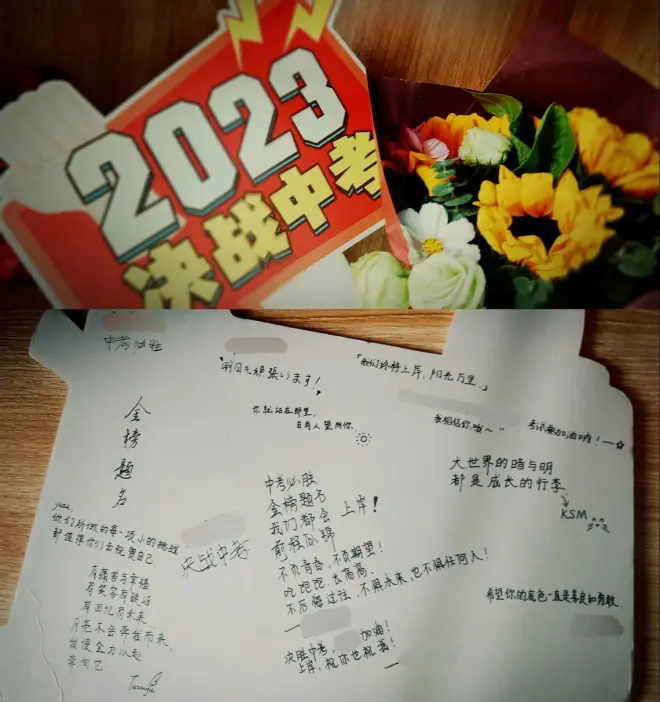 2023
决战中考
中考必胜
"明日も頑張ります!"
「我们终将上岸,阳光万里。」
你就站在那里,
自有人望向你.
我相信你哦~
考试要加油呀!
金
榜
题
名
大世界的暗与明
都是成长的行李
KSM
中考必胜
金榜题名
我们都会 上岸!
前程似锦
yuan,
你们所做的每一项小的挑战
都值得你们去祝贺自己
决战中考
不负青春,不负期望!
吃饱饱,去高高,
不后悔过往,不惧未来,也不惧任何人!
有痛苦与幸福
有笑容有眼泪
有回忆有未来
月亮不会奔我而来,
我便全力以赴
奔向它
希望你的底色一直是善良和勇敢.
决胜中考, 加油!
上岸,祝你也祝我!